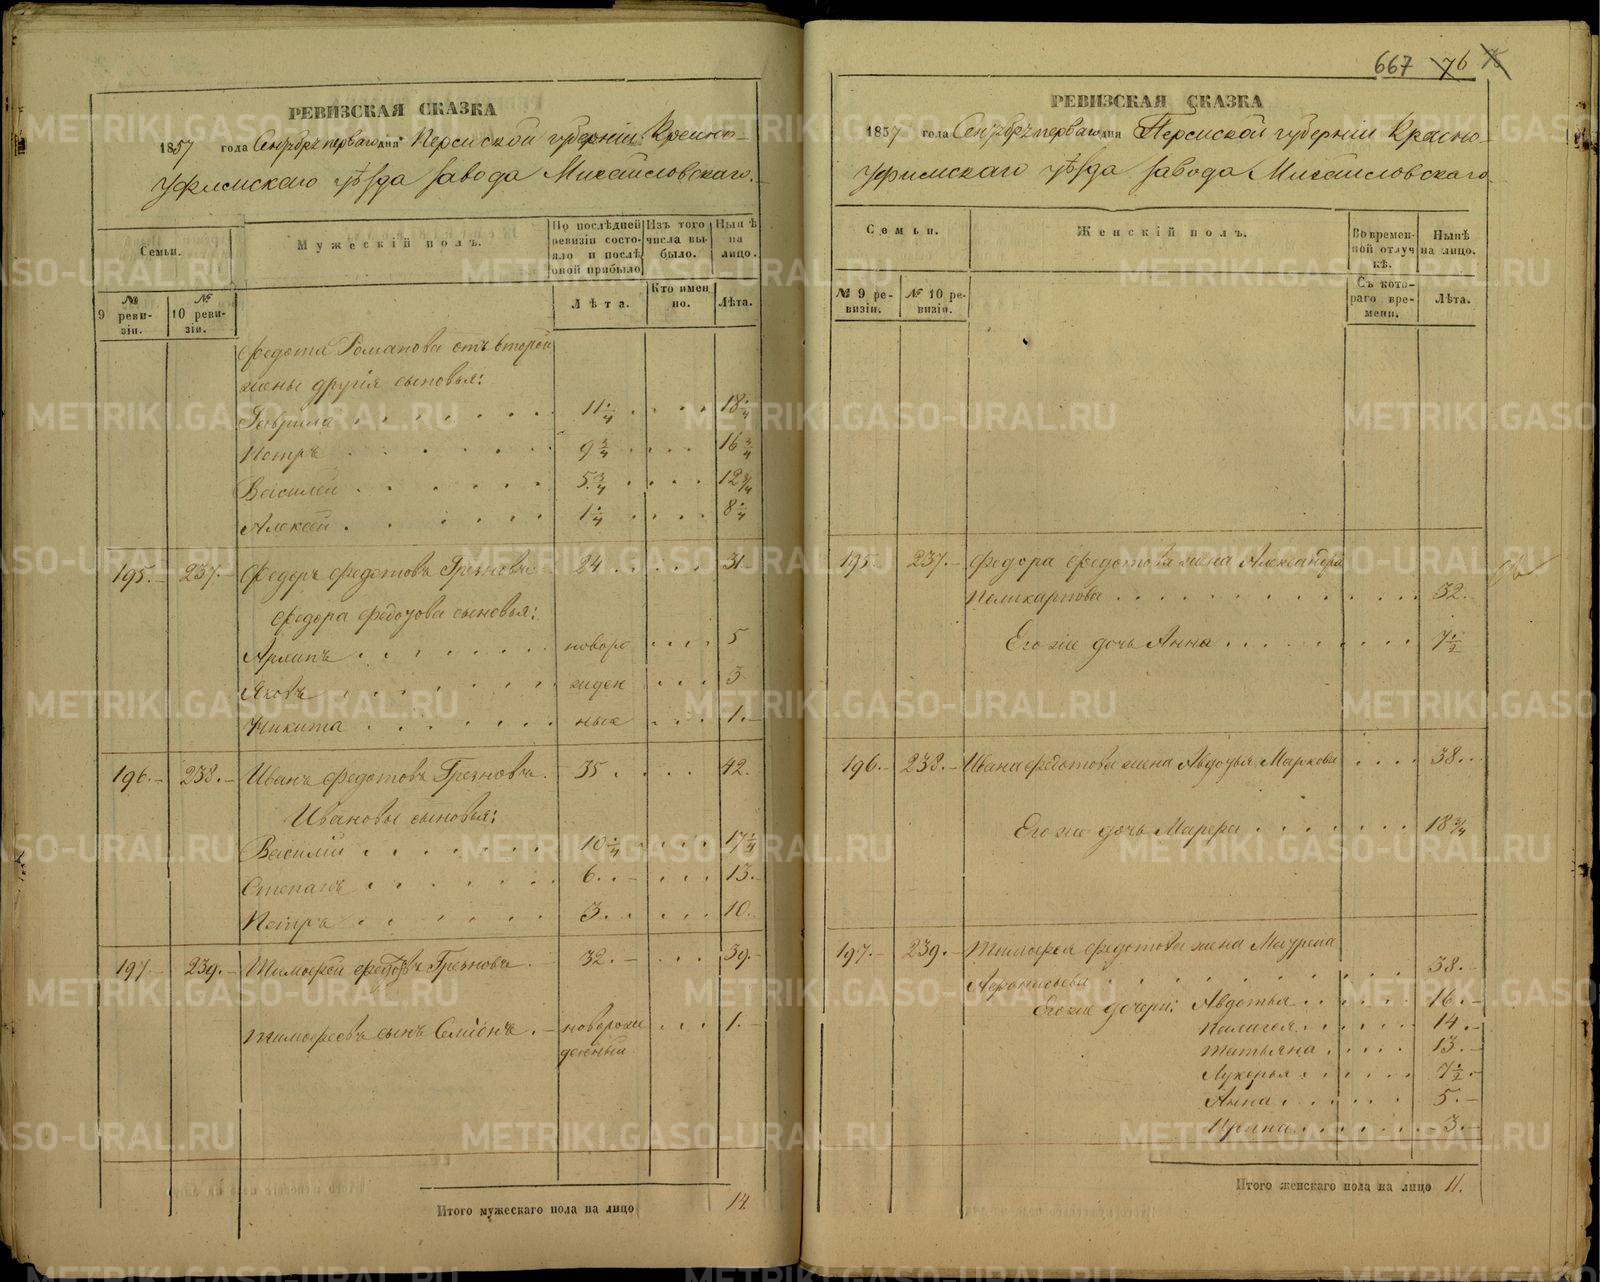 РЕВИЗСКАЯ СКАЗКА
1857 года Сентября перваго дня Пермской губерніи Красно-
Уфимскаго уѣзда завода Михайловскаго.
Семьи.
Мужескій полъ.
По послѣдней ревизіи состояло и послѣ оной прибыло
Изъ того числа выбыло.
Нынѣ на лицо.
№ 9 ревизіи.
№ 10 ревизіи.
Лѣта.
Кто именно.
Лѣта.
Федота Романова отъ второй
жены другія сыновья:
Гаврила 11 1/4 18 1/4
Петръ 9 3/4 16 3/4
Василей 5 3/4 12 3/4
Алексей 1 1/4 8 1/4
195. 237. Федоръ Федотовъ Грезновъ 24 31
Федора Федотова сыновья:
Архипъ новоро 5
Яковъ жден 3
Никита ные 1.
196. 238. Иванъ Федотовъ Грезновъ 35 42.
Ивановы сыновья:
Василій 10 1/4 17 1/4
Степанъ 6. 13.
Петръ 3. 10.
197. 239. Тимофей Федотовъ Грезновъ 32. 39.
Тимофеевъ сынъ Семіонъ новорож 1.
денный
Итого мужескаго пола на лицо 14.
667 76
РЕВИЗСКАЯ СКАЗКА
1857 года Сентября перваго дня Пермской губерніи Красно-
Уфимскаго уѣзда завода Михайловскаго
Семьи.
Женскій полъ.
Во временной отлучкѣ.
Нынѣ на лицо.
№ 9 ревизіи.
№ 10 ревизіи.
Съ котораго времени.
Лѣта.
195. 237. Федора Федотова жена Александра
Поликарпова 32.
Его же дочь Анна 7 1/2
196. 238. Ивана Федотова жена Авдотья Маркова 38.
Его же дочь Марфа 18 3/4
197. 239. Тимофея Федотова жена Маурена
38.
Его же дочери: Авдотья 16.
Пелагея 14.
Татьяна 13.
Лукерья 7 1/2
Анна 5.
Ирина 3.
Итого женскаго пола на лицо 11.
METRIKI.GASO-URAL.RU